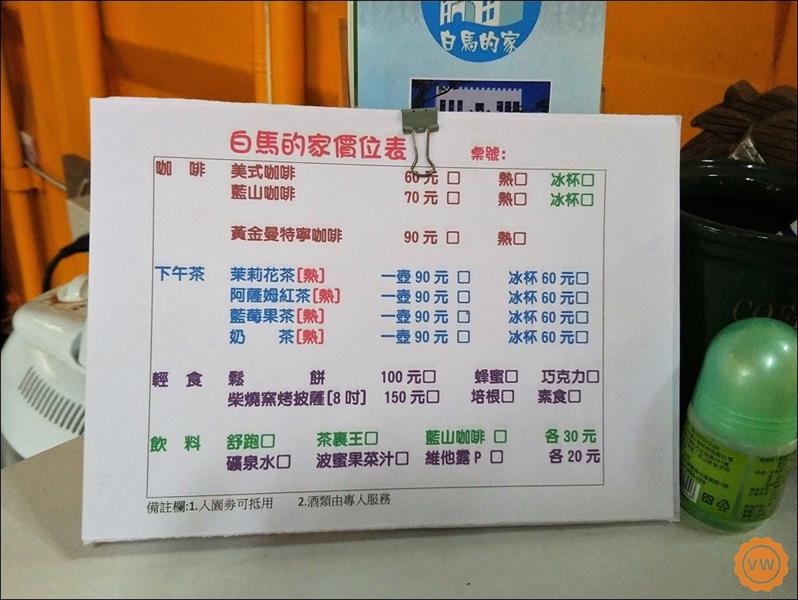 白馬的家
白馬的家價位表 桌號:
咖 啡 美式咖啡 60 元 □ 熱□ 冰杯□
藍山咖啡 70 元 □ 熱□ 冰杯□
黃金曼特寧咖啡 90 元 □ 熱□
下午茶 茉莉花茶[熱] 一壺 90 元 □ 冰杯 60 元□
阿薩姆紅茶[熱] 一壺 90 元 □ 冰杯 60 元□
藍莓果茶[熱] 一壺 90 元 □ 冰杯 60 元□
奶 茶[熱] 一壺 90 元 □ 冰杯 60 元□
輕 食 鬆 餅 100 元□ 蜂蜜□ 巧克力□
柴燒窯烤披薩[8 吋] 150 元□ 培根□ 素食□
飲 料 舒跑□ 茶裏王□ 藍山咖啡 □ 各 30 元
礦泉水□ 波蜜果菜汁□ 維他露 P □ 各 20 元
備註欄:1.入園券可抵用 2.酒類由專人服務
VW